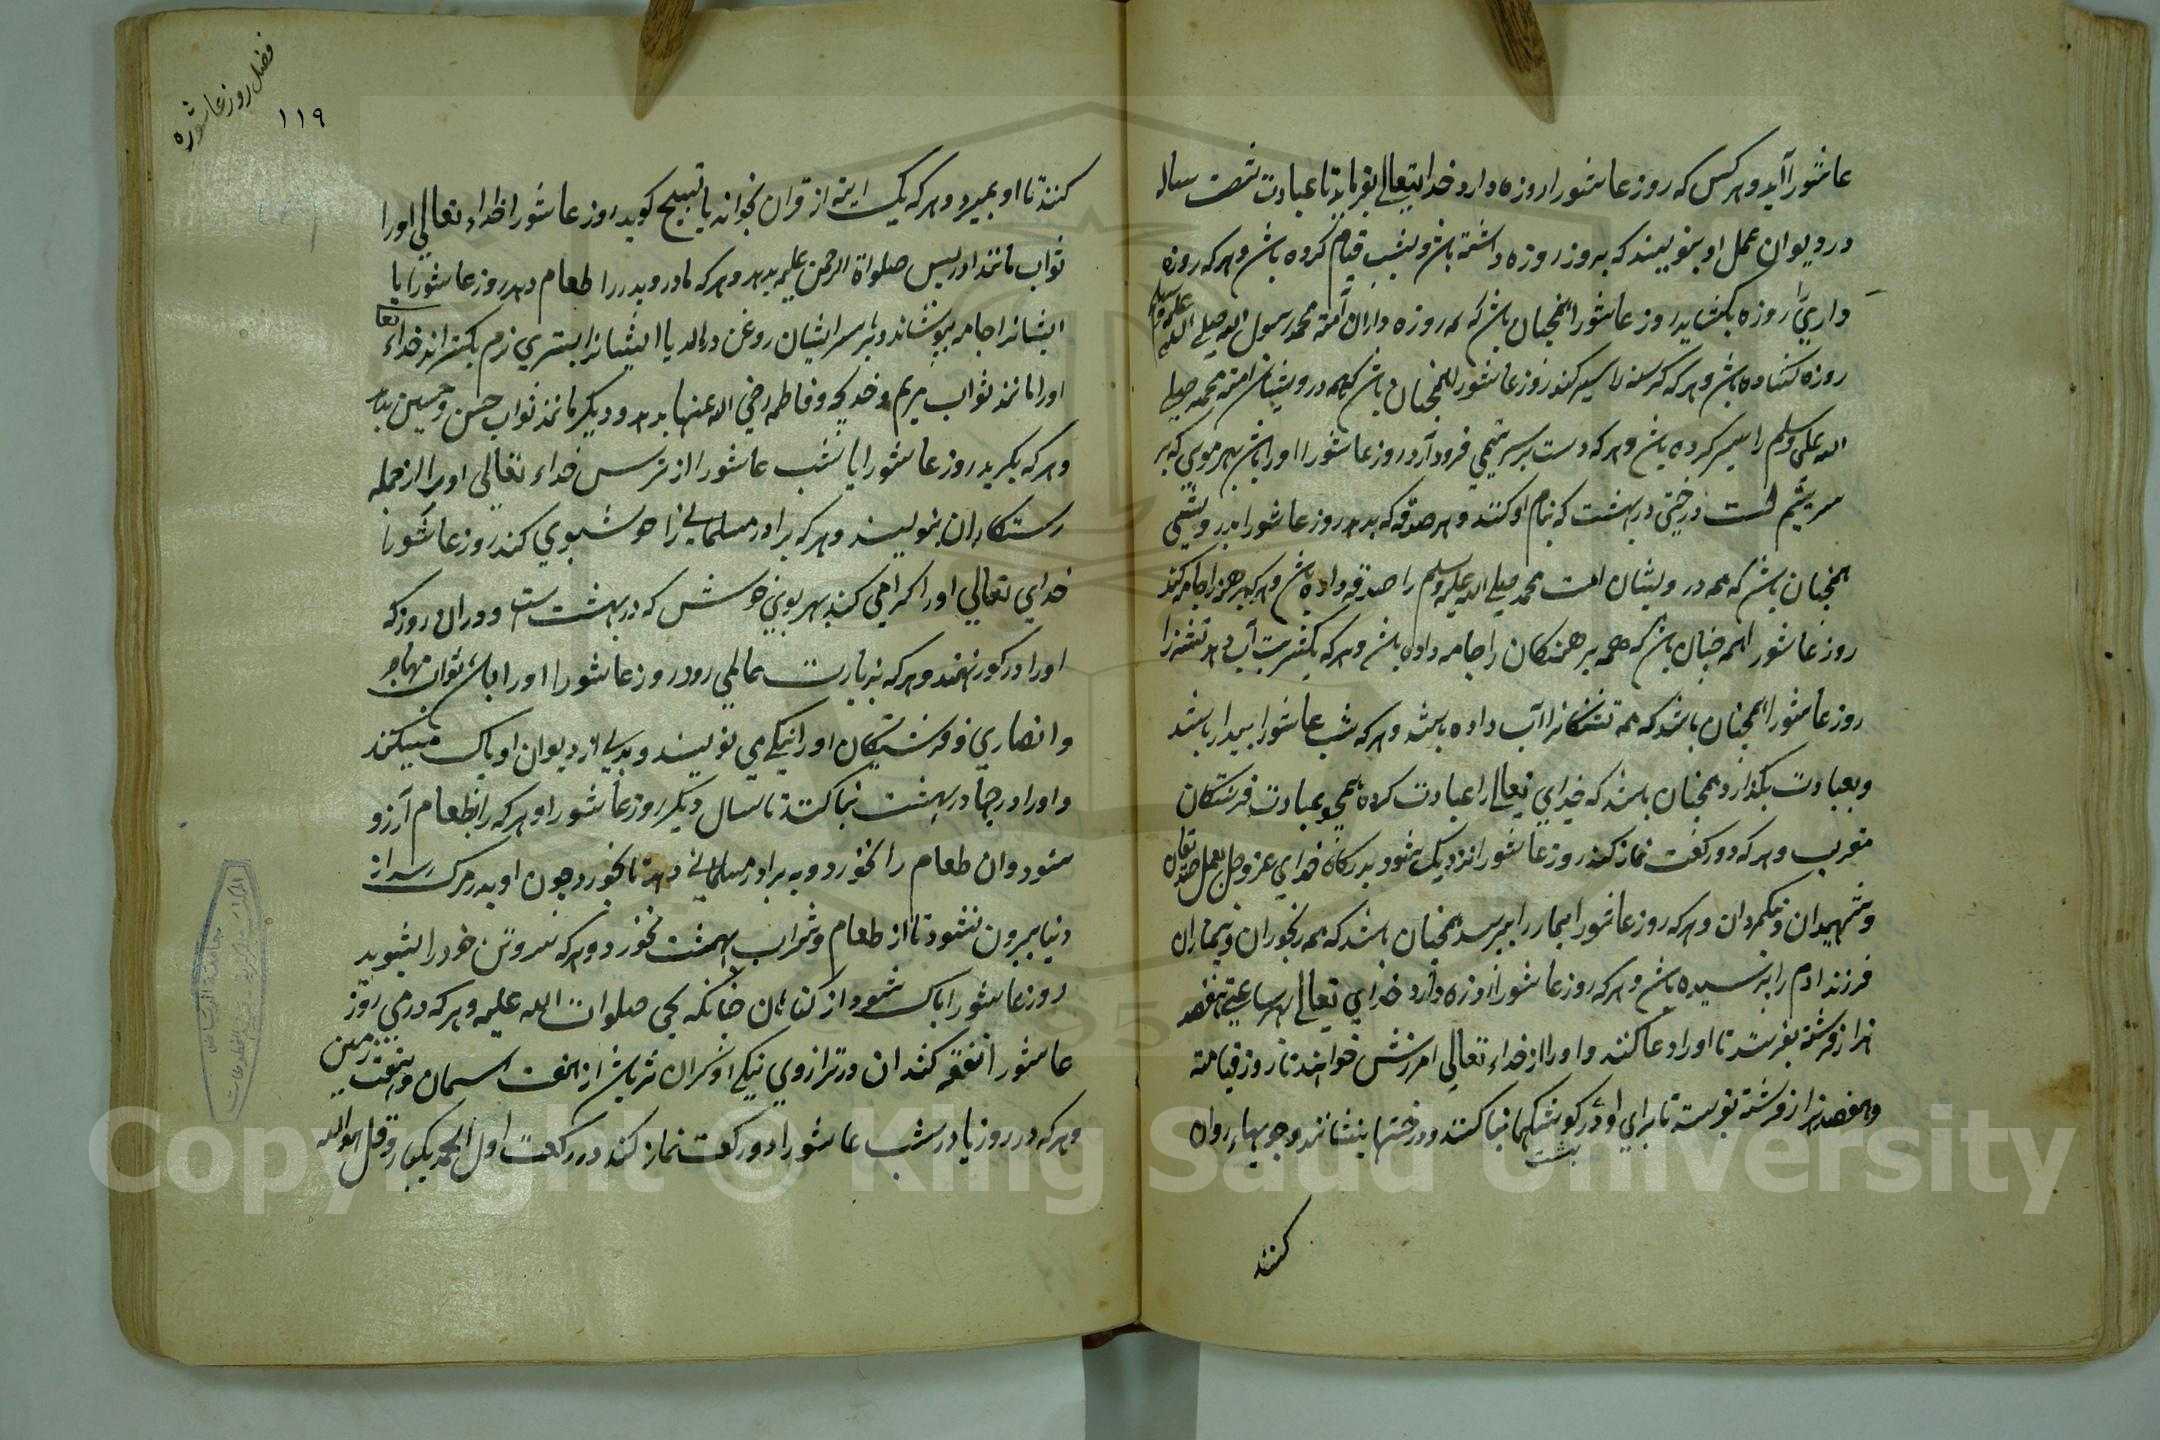 عاشورا آید و هر کس که روز عاشورا روزه دارد خدایتعالی بفرماید تا عبادت شصت ساله
در دیوان عمل او بنویسند که بروز روزه داشته باشد و بشب قیام کرده باشد و هر که روزه
داری را روزه بکشاید روز عاشورا همچنان باشد که همه روزه داران امة محمد رسول الله صلی الله علیه وسلم
روزه کشاده باشد و هر که کرسنه را سیر کند روز عاشورا همچنان باشد که همه درویشان امة محمد صلی
الله علیه وسلم را سیر کرده باشد و هر که دست بر سر یتیمی فرود آرد روز عاشورا او را باشد بهر موی که بر
سر یتیم است درختی در بهشت که بنام او کنند و هر صدقه که بدهد روز عاشورا بدرویشی
همچنان باشد که همه درویشان امت محمد صلی الله علیه وسلم را صدقه داده باشد و هر که برهنه را جامه کند
روز عاشورا همچنان باشد که همه برهنکان را جامه داده باشد و هر که یکشربت آب دهد تشنه را
روز عاشورا همچنان باشد که همه تشنکانرا آب داده باشد و هر که شب عاشورا بیدار باشد
و بعبادت بکذارد همچنان باشد که خدای تعالی را عبادت کرده همچو عبادت فرشتکان
مقرب و هر که دو رکعت نماز کند روز عاشورا نزدیک شود بدرکاه خدای عز وجل بعمل صدیقان
و شهیدان و نیکمردان و هر که روز عاشورا بیمار را بپرسد همچنان باشد که همه رنجوران و بیماران
فرزند ادم را پرسیده باشد و هر که روز عاشورا روزه دارد خدای تعالی هر ساعتی هفصد
هزار فرشته بفرستد تا او را دعا کنند و او را از خداء تعالی امرزش خواهند تا روز قیامة
و هفصد هزار فرشته بفرسته تا برای او در بهشت کوشکها بنا کنند و درختها بنشانند و جویهاء روان
کنند
فضل روز عاشوره
١١٩
کنند تا او بمیرد و هر که یک ایة از قران بخواند یا تسبیح کوید روز عاشورا خداء تعالی او را
ثواب مانند ادریس صلواة الرحمن علیه بدهد و هر که مادر و پدر را طعام دهد روز عاشورا یا
ایشانرا جامه بپوشاند و بر سر ایشان روغن در مالد یا ایشانرا بستری نرم بکستراند خداء تعا
او را مانند ثواب مریم و خدیجه و فاطمه رضی الله عنها بدهد و دیکر مانند ثواب حسن و حسین بدهد
و هر که بکرید روز عاشورا یا شب عاشورا از ترس خداء تعالی او را از جمله
رستکاران بنویسند و هر که برادر مسلمانی را خوشبوی کند روز عاشورا
خدای تعالی او را کرامی کند بهر بوی خوش که در بهشت است و در ان روز که
او را در کور نهند و هر که بزیارت عالمی رود روز عاشورا او را باشد ثواب مهاجر
و انصاری و فرشتکان او را نیکی می نویسند و بدی از دیوان او پاک میکنند
و او را درجها در بهشت بنا کنند تا سال دیکر روز عاشورا و هر که را طعام آرزو
شود و ان طعام را نخورد و به برادر مسلمانی دهد تا بخورد چون او بدر مرک رسد از
دنیا بیرون نشود تا از طعام و شراب بهشت نخورد و هر که سر و تن خود را بشوید
روز عاشورا پاک شود از کناهان چنانکه یحیی صلوات الله علیه و هر که درمی روز
عاشورا نفقه کند ان در ترازوی نیکی او کران تر باشد از هفت اسمان و هفت زمین
و هر که در روز یا در شب عاشورا دو رکعت نماز کند در رکعت اول الحمد یکبار و قل هو الله